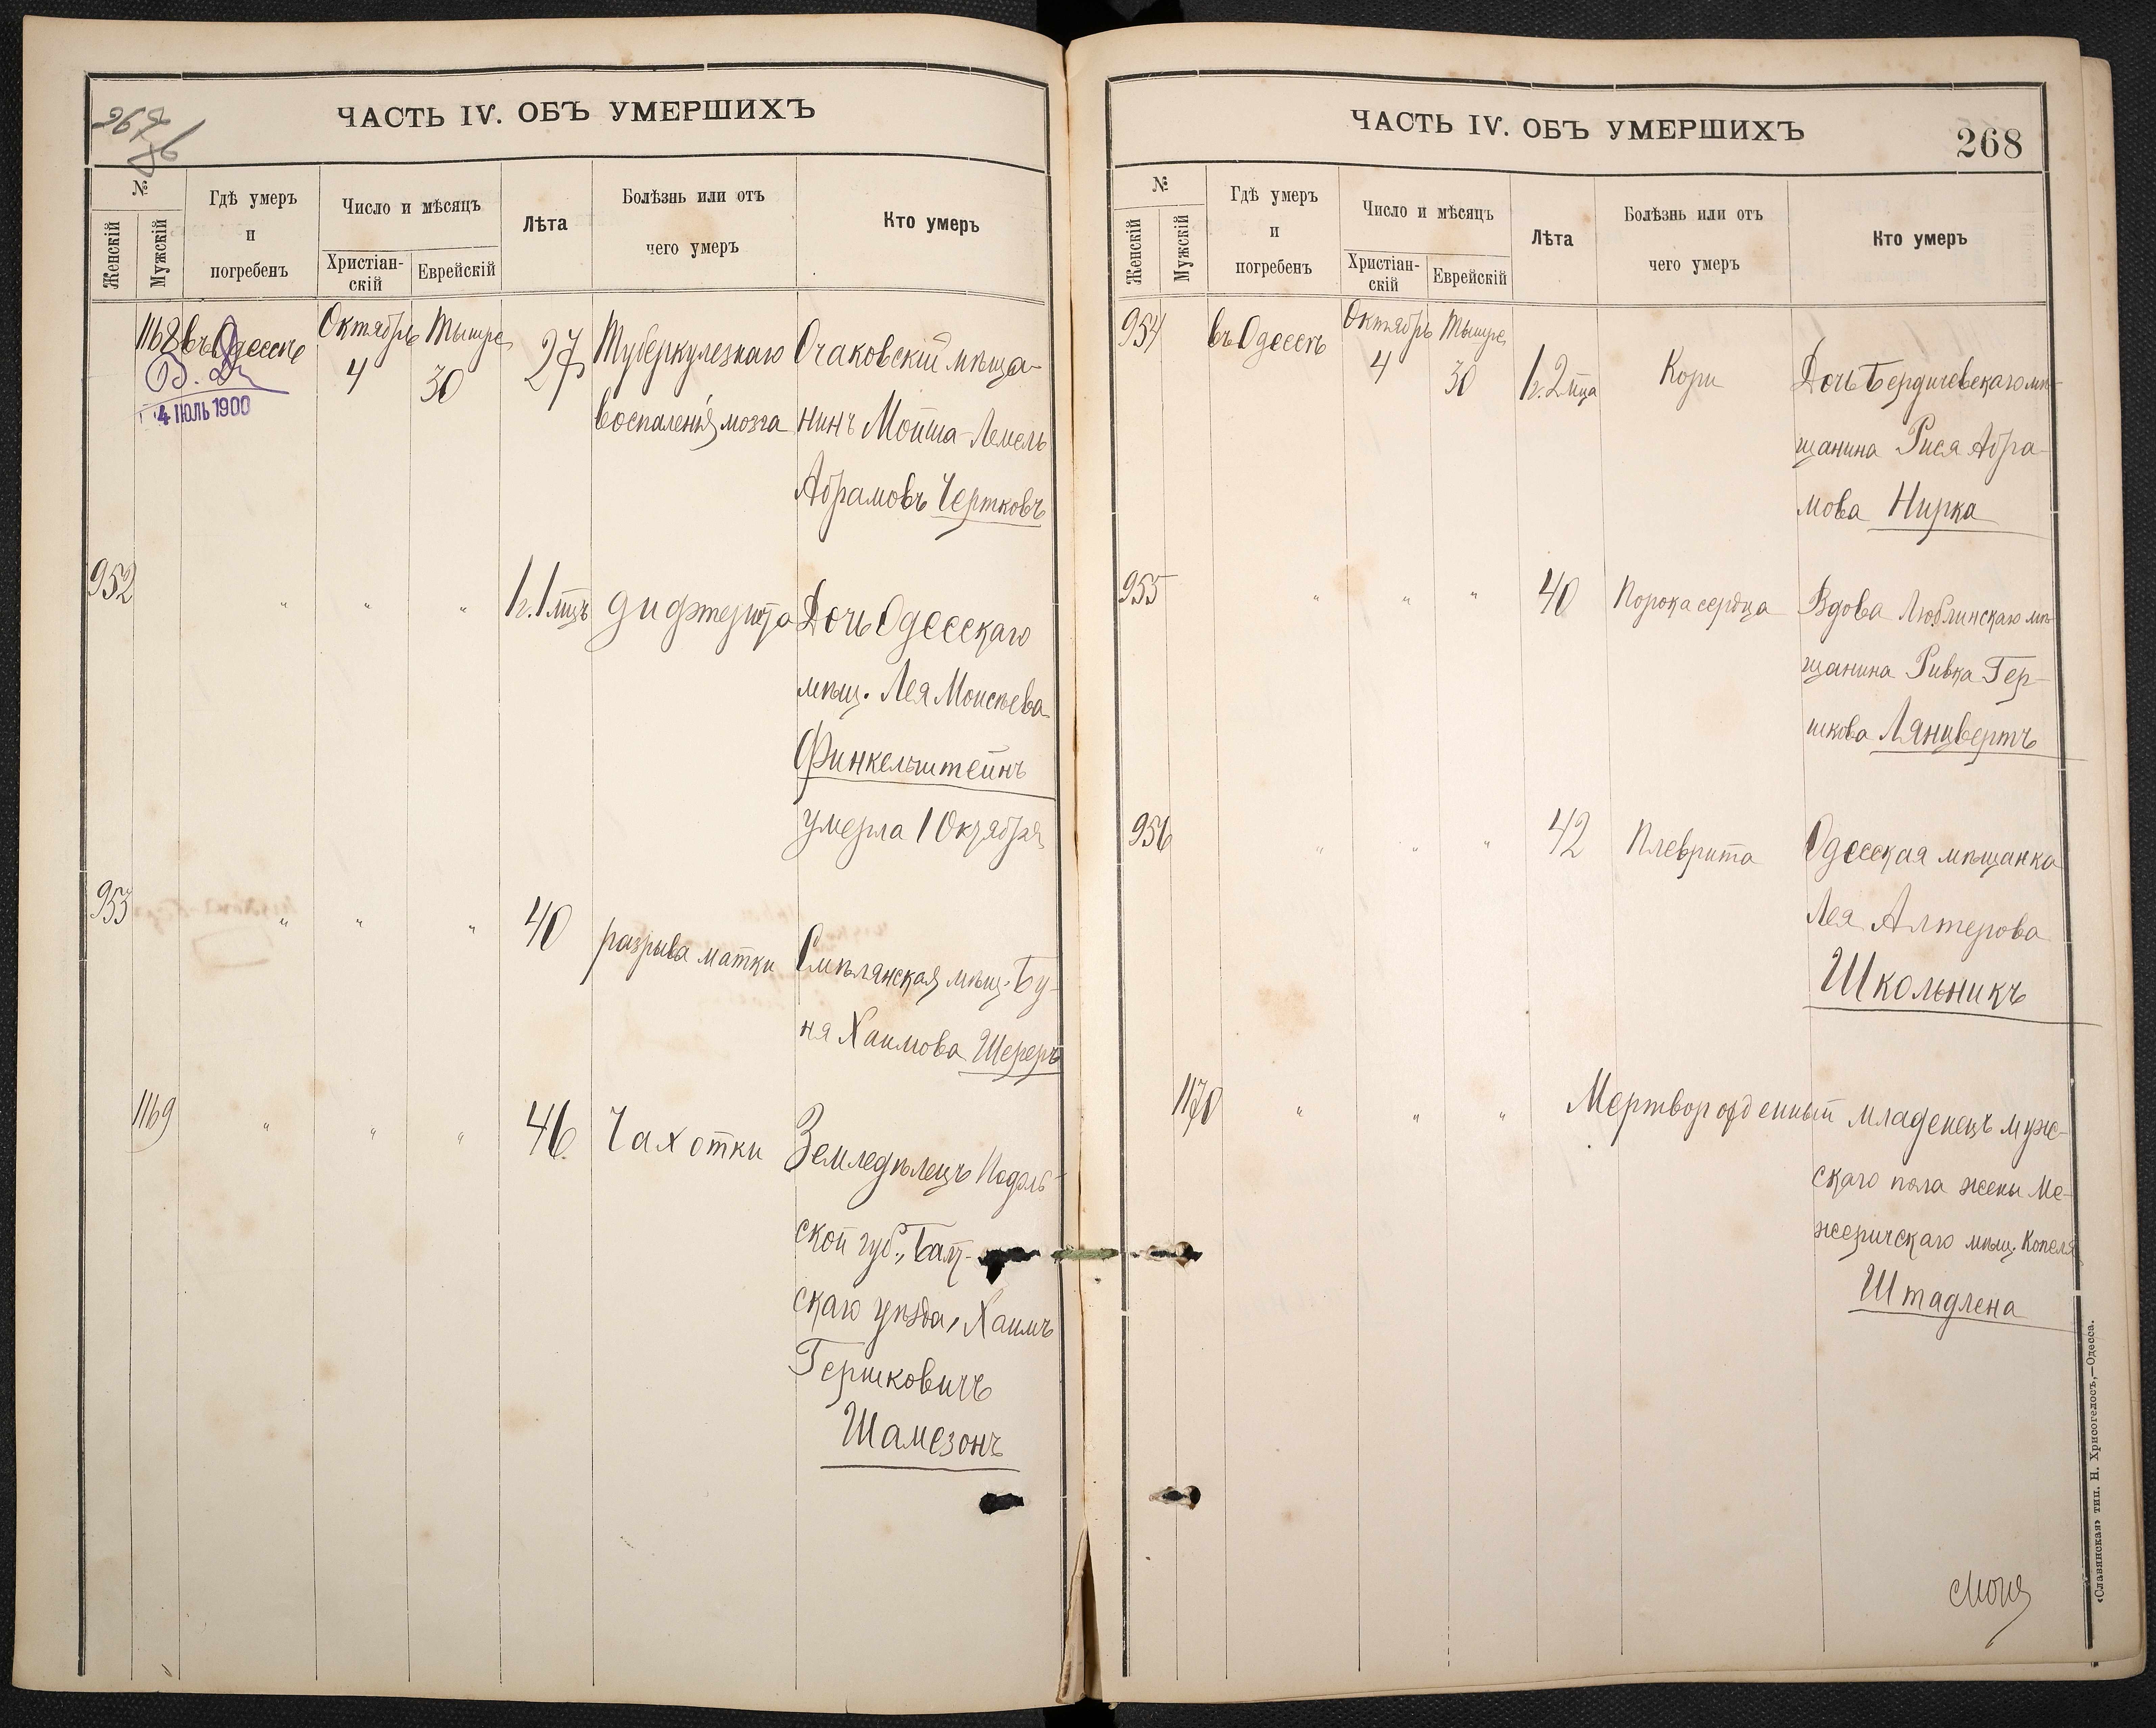 ЧАСТЬ IV. ОБЪ УМЕРШИХЪ
№
Женскій
Мужскій
Гдѣ умеръ
и
погребенъ
Число и мѣсяцъ
Христіан-
скій
Еврейскій
Лѣта
Болѣзнь или отъ
чего умеръ
Кто умеръ
1168
въ Одессѣ
Октябрь
4
Тышре
30
27
Туберкулезнаго
воспаленія мозга
Очаковскій мѣща-
нинъ Мойша-Лемель
Абрамовъ Чертковъ
4 ІЮЛЬ 1900
952
" " "
1 г. 1 мцъ
дифтерита
Дочь Одесскаго
мѣщ. Лея Моисѣева
Финкельштейнъ
умерла 1 Октября
953
" " "
40
разрыва матки
Смѣлянская мѣщ. Бу-
ня Хаимова Шереръ
1169
" " "
46
Чахотки
Земледѣлецъ Подоль-
ской губ., Балт-
скаго уѣзда, Хаимъ
Гершковичъ
Шамезонъ
ЧАСТЬ IV. ОБЪ УМЕРШИХЪ
268
№
Женскій
Мужскій
Гдѣ умеръ
и
погребенъ
Число и мѣсяцъ
Христіан-
скій
Еврейскій
Лѣта
Болѣзнь или отъ
чего умеръ
Кто умеръ
954
въ Одессѣ
Октябрь
4
Тышре
30
1 г. 2 мца
Кори
Дочь Бердичевскаго мѣ-
щанина Рися Абра-
мова Нирка
955
" " "
40
Порока сердца
Вдова Люблинскаго мѣ-
щанина Ривка Гер-
шкова Лянцвертъ
956
" " "
42
Плеврита
Одесская мѣщанка
Лея Алтерова
Школьникъ
1170
" " "
Мертворожденный младенецъ муж-
скаго пола жены Ме-
жеричскаго мѣщ. Копеля
Штадлена
«Славянская» тип. Н. Хрисогелосъ,—Одесса.